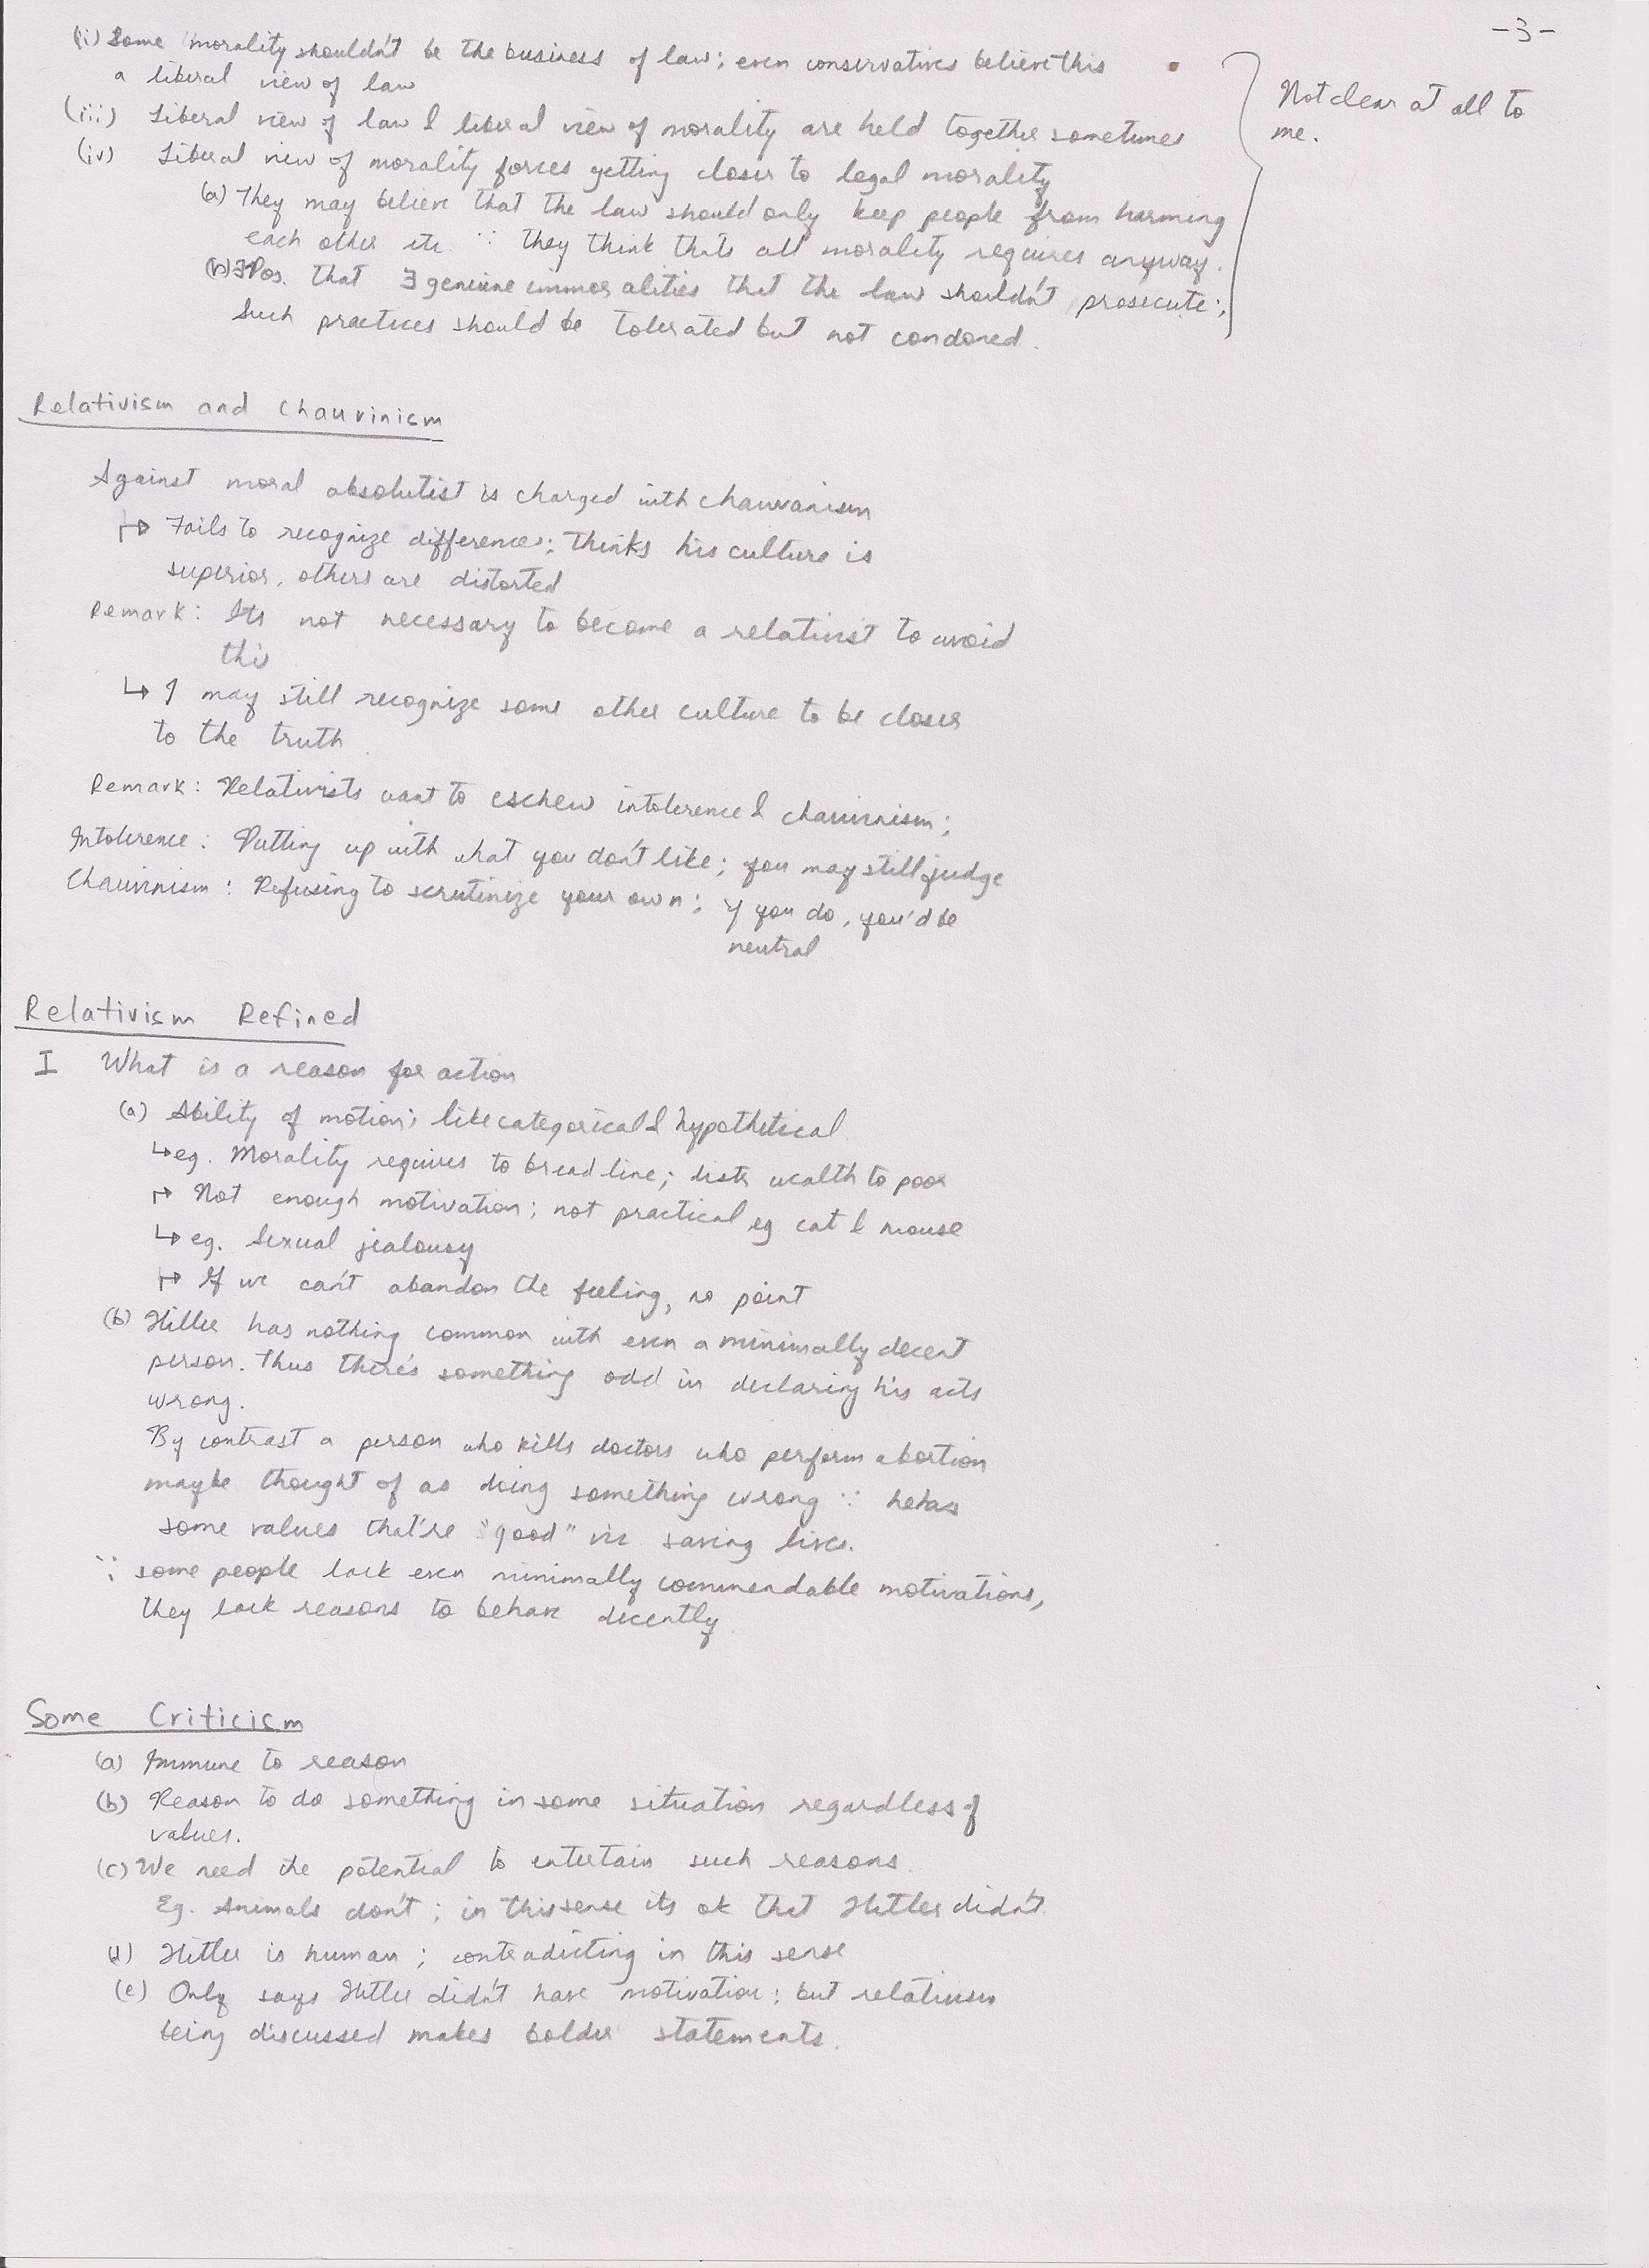 -3-
(ii) Some morality shouldn't be the business of law; even conservatives believe this
a liberal view of law
Not clear at all to
me.
(iii) Liberal view of law & liberal view of morality are held together sometimes
(iv) Liberal view of morality forces getting closer to legal morality
(a) They may believe that the law should only keep people from harming
each other etc ∵ they think thats all morality requires anyway.
(b) Pos. that ∃ genuine immoralities that the law shouldn't prosecute;
Such practices should be tolerated but not condoned.
Relativism and Chauvinism
Against moral absolutist is charged with chauvanism
↦ Fails to recognize difference; thinks his culture is
superior, others are distorted
Remark: Its not necessary to become a relativist to avoid
this
↳ I may still recognize some other culture to be closer
to the truth.
Remark: Relativists want to eschew intolerence & chauvinism;
Intolerence: Putting up with what you don't like; you may still judge
Chauvinism: Refusing to scrutinize your own; if you do, you'd be
neutral
Relativism Refined
I What is a reason for action
(a) Ability of motion; like categorical & hypothetical
↳ eg. Morality requires to bread line; wealth to poor
↦ Not enough motivation; not practical eg cat & mouse
↳ eg. Sexual jealousy
↦ If we can't abandon the feeling, no point
(b) Hitler has nothing common with even a minimally decent
person. Thus there's something odd in declaring his acts
wrong.
By contrast a person who kills doctors who perform abortion
maybe thought of as doing something wrong ∵ he has
some values that're "good" viz saving lives.
∵ some people lack even minimally commendable motivations,
they lack reasons to behave decently.
Some Criticism
(a) Immune to reason
(b) Reason to do something in some situation regardless of
values.
(c) We need the potential to entertain such reasons.
Eg. Animals don't; in this sense its ok that Hitler didn't.
(d) Hitler is human; contradicting in this sense
(e) Only says Hitler didn't have motivation; but relativism
being discussed makes bolder statements.